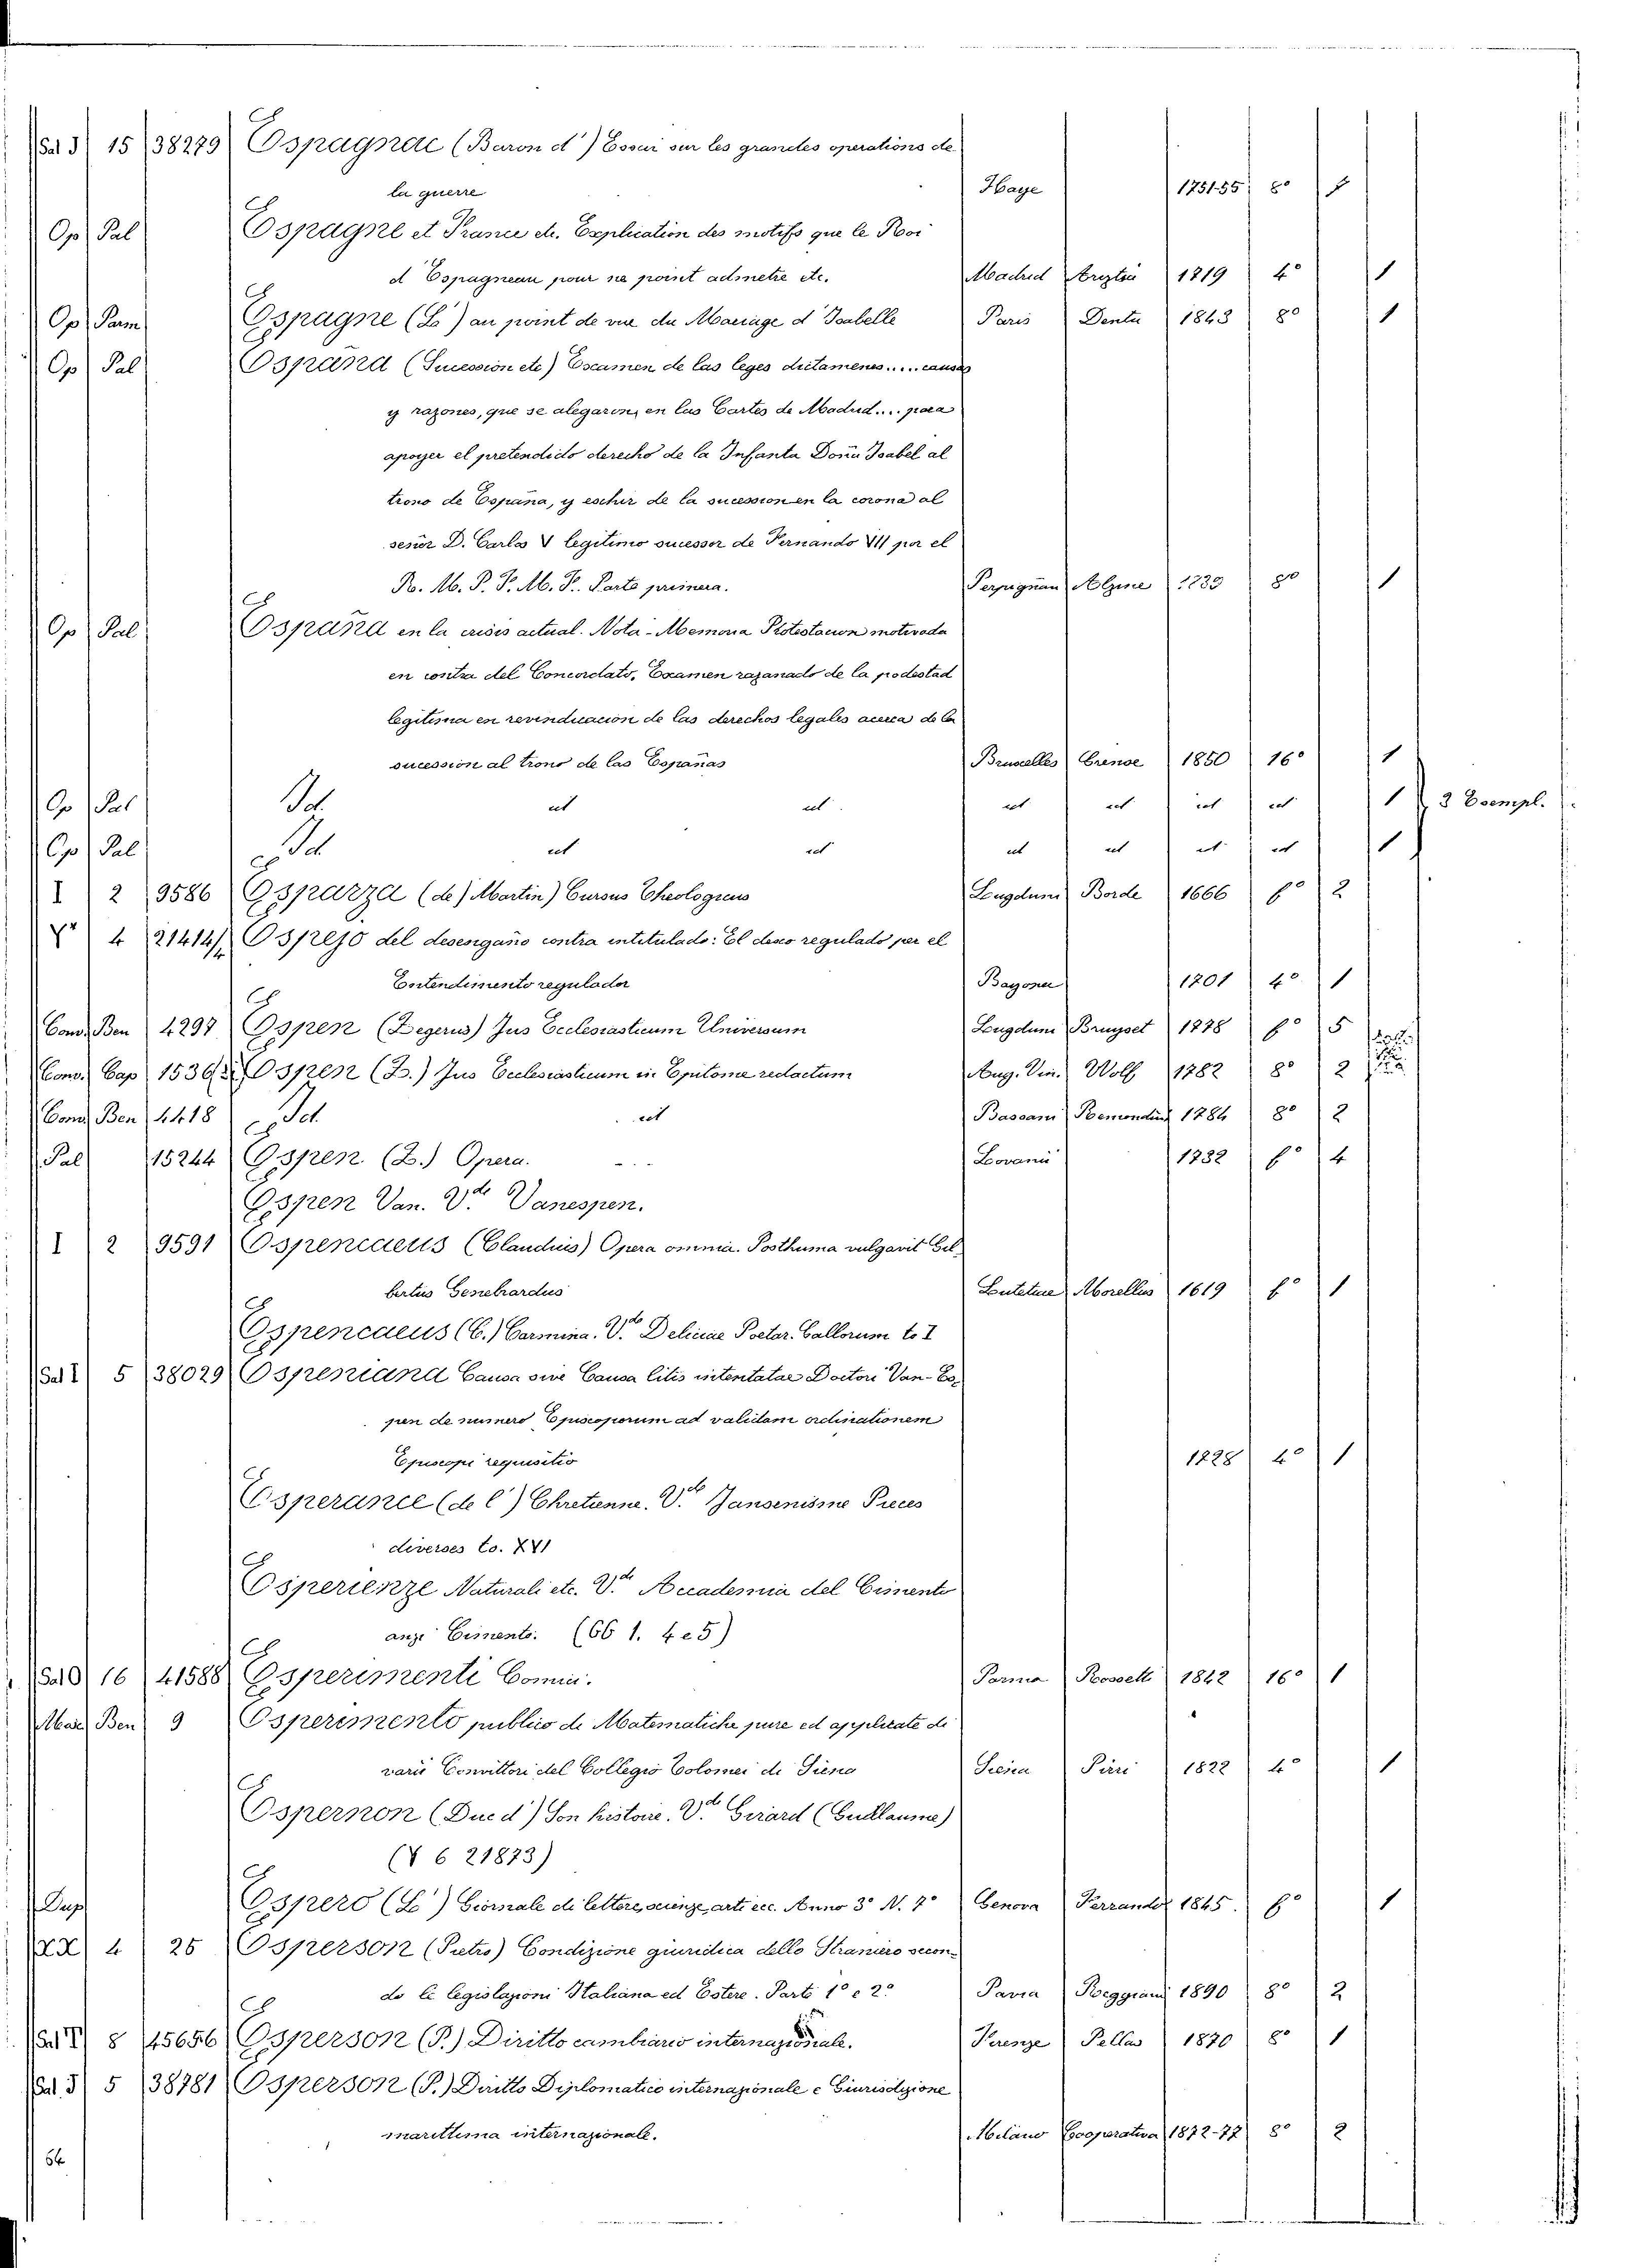 Sal J 15 38279 Espagnac (Baron d') Essai sur les grandes operations de
la guerre Haye 1751-55 8º
Op Pal Espagne et France etc. Explication des motifs que le Roi
d'Espagneau pour ne point admetre etc. Madrid 1719 4º 1
Op Parm Espagne (L') au point de vue du Mariage d'Isabelle Paris Dentu 1843 8º 1
Op Pal España (Sucession etc) Escamen de las leges dictamenes..... causas
y razones, que se alegaron, en las Cortes de Madrid.... para
apoyer el pretendido derecho de la Infanta Doña Isabel al
trono de España, y eschir de la sucession en la corona al
señor D. Carlos V legitimo sucessor de Fernando VII por el
R. M. P. F. M. F. Parte primera. Perpignan Alzine 1839 8º 1
Op Pal España en la crisis actual. Nota-Memoria Protestacion motivada
en contra del Concordato, Examen razanado de la podestad
legitima en revinducacion de las derechos legales acerca de la
sucession al trono de las Españas Bruxelles Grense 1850 16º 1
Op Pal Id. ut ut ut ut ut ut 1 3 Esempl.
Op Pal Id ut ut ut ut ut ut 1
I 2 9586 Esparza (de) Martin) Cursus Theologicus Lugduni Borde 1666 fº 2
V 4 21414 Espejo del desengaño contra intitulado: El deseo regulado per el
Entendimento regulador Bayonne 1701 4º 1
Conv. Ben 4297 Espen (Zegerus) Jus Ecclesiasticum Universum Lugduni Bruyset 1778 fº 5
Conv. Cap Espen (Z.) Jus Ecclesiasticum in Epitome redactum Aug. Vin. Wolf 1782 8º 2
Conv. Ben 4418 Id. ut Bassani Remondini 1784 8º 2
Pal 15244 Espen (Z.) Opera. Lovanii 1732 fº 4
Espen Van. Vde Vanespen.
I 2 9591 Espencaeus (Claudius) Opera omnia. Posthuma vulgavit Gil-
bertus Genebrardus Lutetiae Morellus 1619 fº 1
Espencaeus (C.) Carmina. Vde Deliciae Poetar. Gallorum to I
Sal I 5 38029 Espeniana Causa sive Causa litis intentatae Doctori Van-Es-
pen de numero Episcoporum ad validam ordinationem
Episcopi requisitio 1728 4º 1
Esperance (de l') Chretienne. Vde Jansenisme Pieces
diverses to. XVI
Esperienze Naturali etc. Vde Accademia del Cimento
anzi Cimento. (66 1. 4 e 5)
Sal O 16 41588 Esperimenti Comici. Parma Rossetti 1842 16º 1
Mar Ben 9 Esperimento publico di Matematiche pure ed applicate di
varii Convittori del Collegio Tolomei di Siena Siena Pirri 1822 4º 1
Espernon (Duc d') Son histoire. Vde Girard (Guillaume)
(V 6 21873)
Dup Espero (L') Giornale di lettere, scienze, arti ecc. Anno 3º N. 7º Genova Ferrandol 1845. fº 1
XX 4 25 Esperson (Pietro) Condizione giuridica dello Straniero secon-
do le legislazioni Italiana ed Estere. Parti 1º e 2º Pavia Beggiani 1890 8º 2
8 45656 Esperson (P.) Diritto cambiario internazionale. Firenze Pellas 1870 8º 1
Sal. J 5 38781 Esperson (P.) Diritto Diplomatico internazionale e Giurisdizione
marittima internazionale. Milano Cooperativa 1872-77 8º 2
54